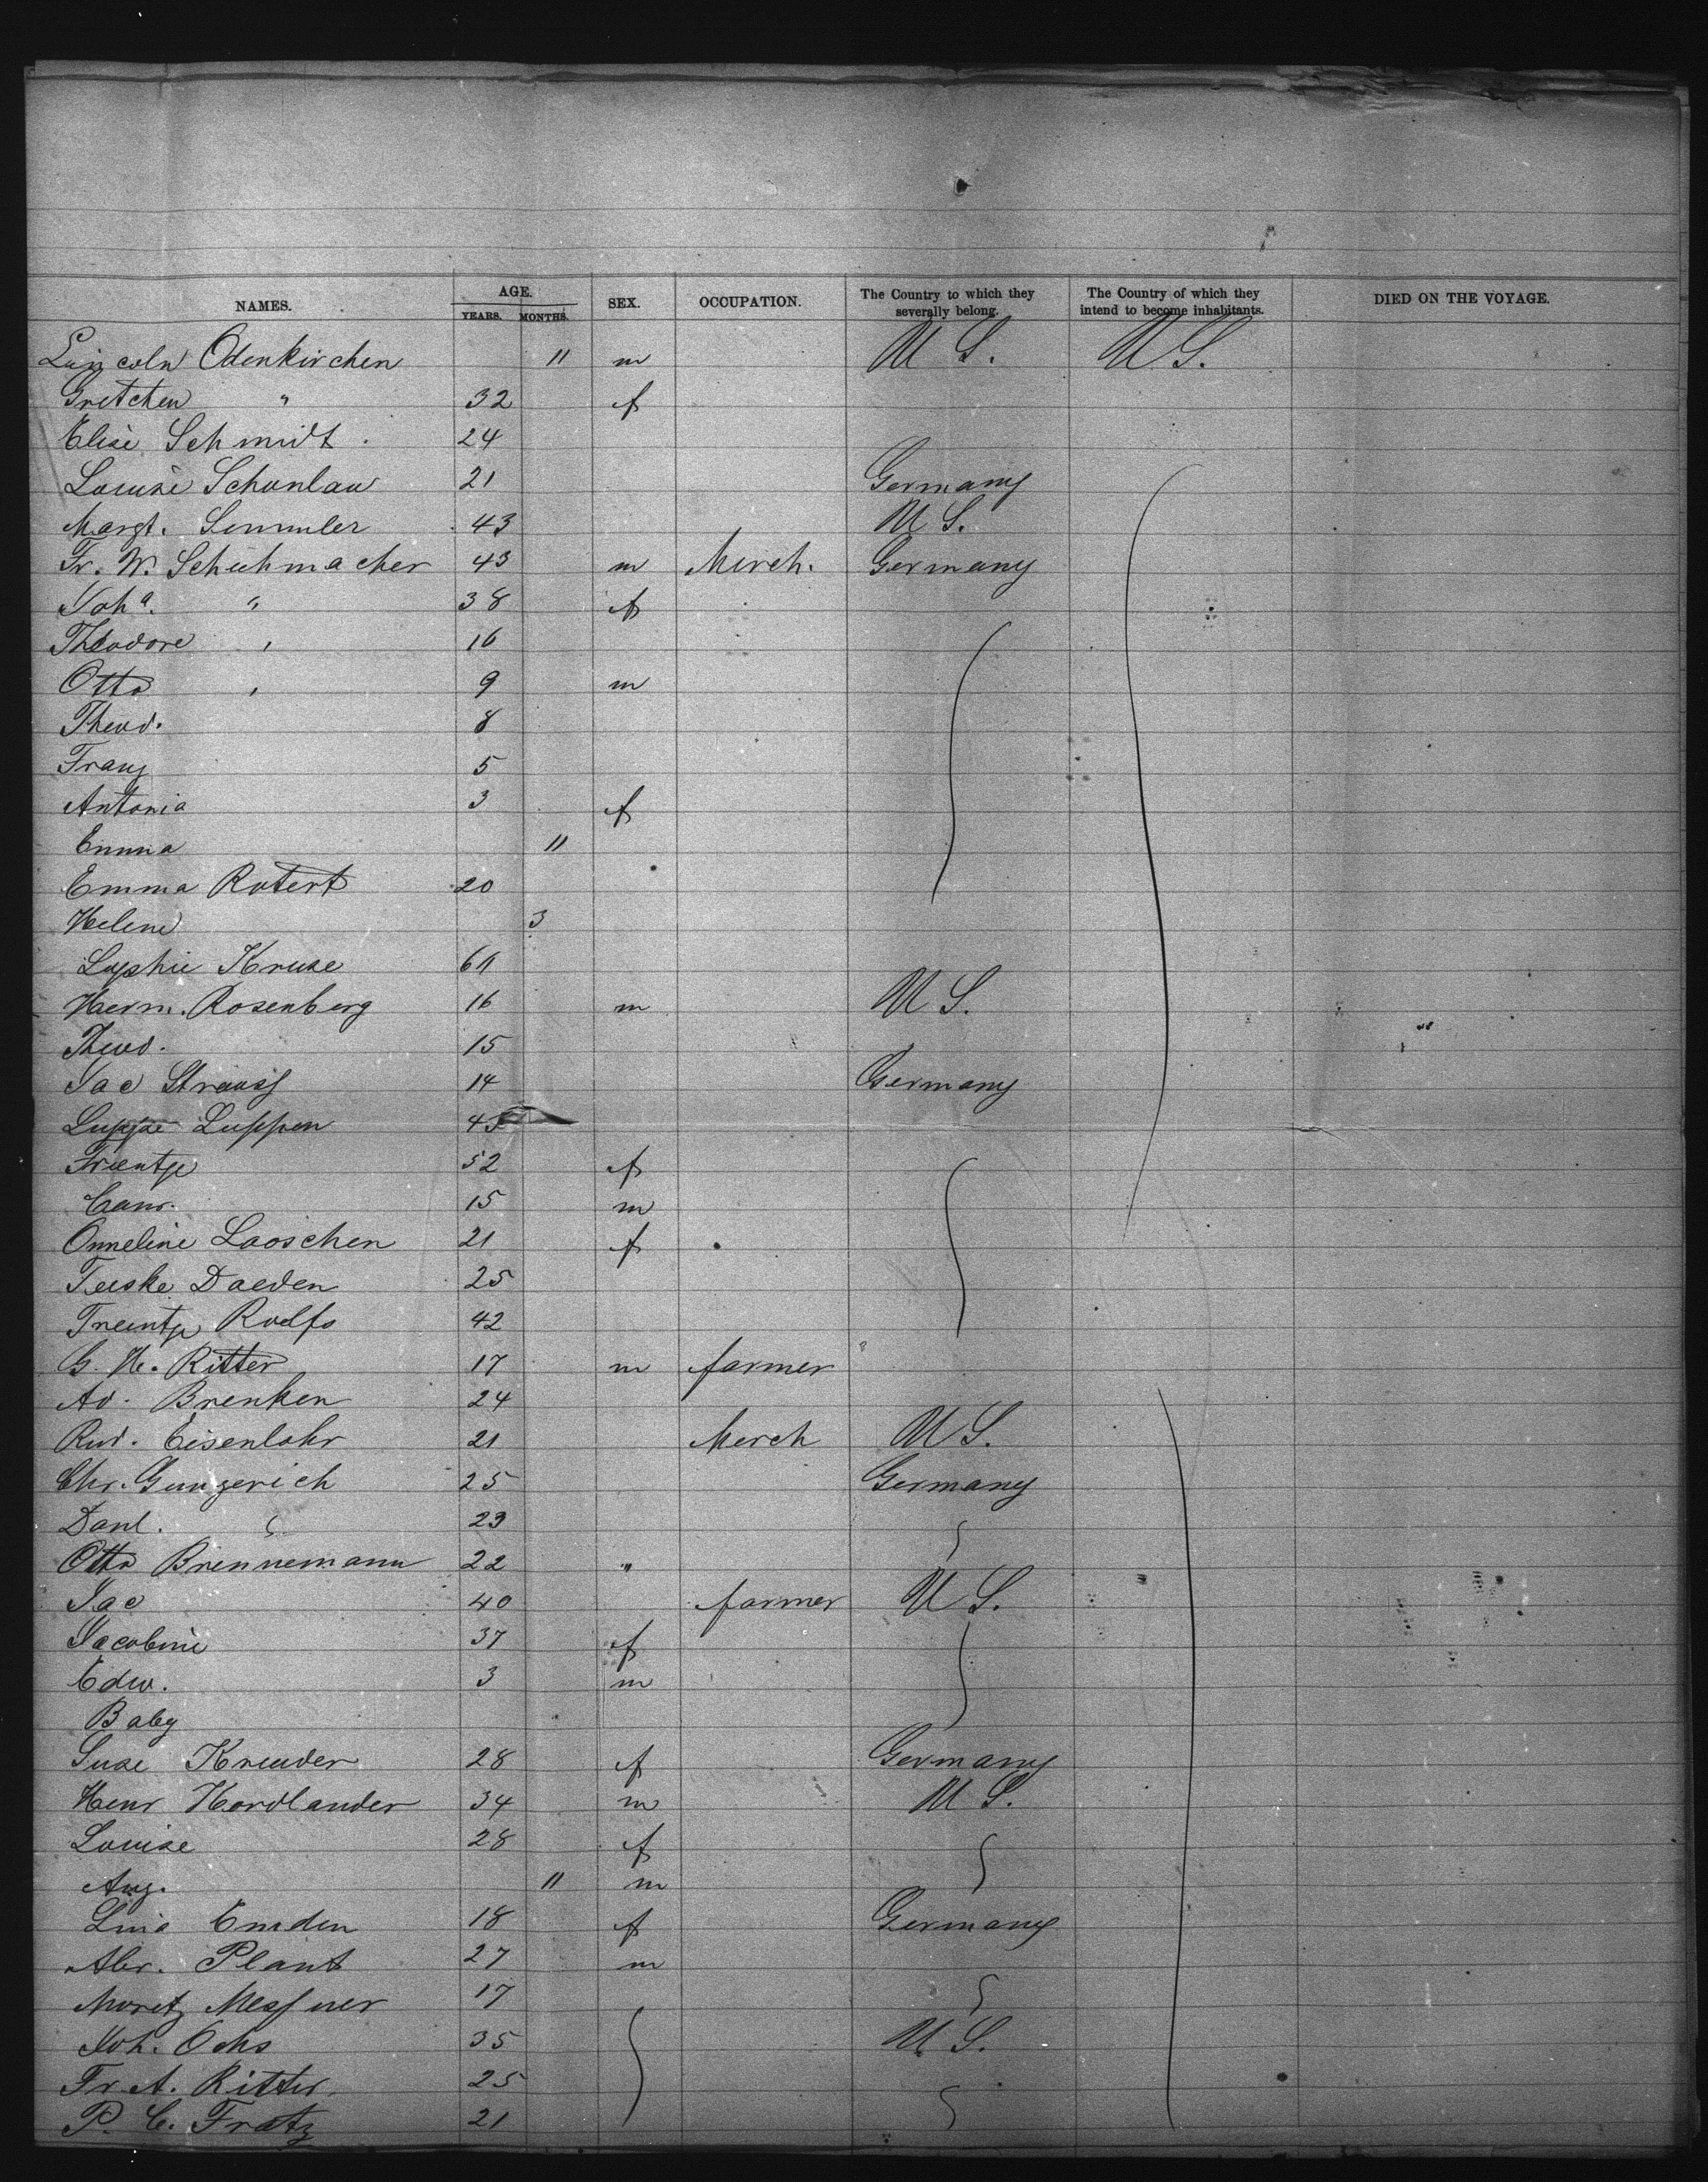 NAMES. AGE. YEARS. MONTHS. SEX. OCCUPATION. The Country to which they severally belong. The Country of which they intend to become inhabitants. DIED ON THE VOYAGE.
Lincoln Odenkirchen 11 m U S. U S.
Gretchen " 32 f
Elise Schmidt 24
Louise Schonlau 21 Germany
Margt. Semmler 43 U S.
Fr. W. Schuhmacher 43 m Merch. Germany
Joha. " 38 f
Theodore " 16
Otto " 9 m
Theod. 8
Franz 5
Antonia 3 f
Emma 11
Emma Rotert 20
Helene 3
Sophie Kruse
Herm. Rosenberg 16 m U S.
Theod. 15
Jac Strauss 14 Germany
Luppe Luppen 45
Trientje 52 f
15 m
Onneline Looschen 21 f
Teeske Daeden 25
Treentje Roelfs 42
G. H. Ritter 17 m farmer
Ad. Brenken 24
Rud. Eisenlohr 21 Merch U S.
Chr. Gungerich 25 Germany
Danl. " 23
Otto Brennemann 22 "
Jac 40 farmer U S.
Jacobine 37 f
Edw. 3 m
Baby
Suse Kreuder 28 f Germany
Henr Hordlander 34 m U S.
Louise 28 f
Aug. 11 m
Lina Emden 18 f Germany
Abr. Plaut 27 m
Moritz Messner 17
Joh. Ochs 35 U S.
Fr. A. Ritter. 25
P. C. Fratz 21